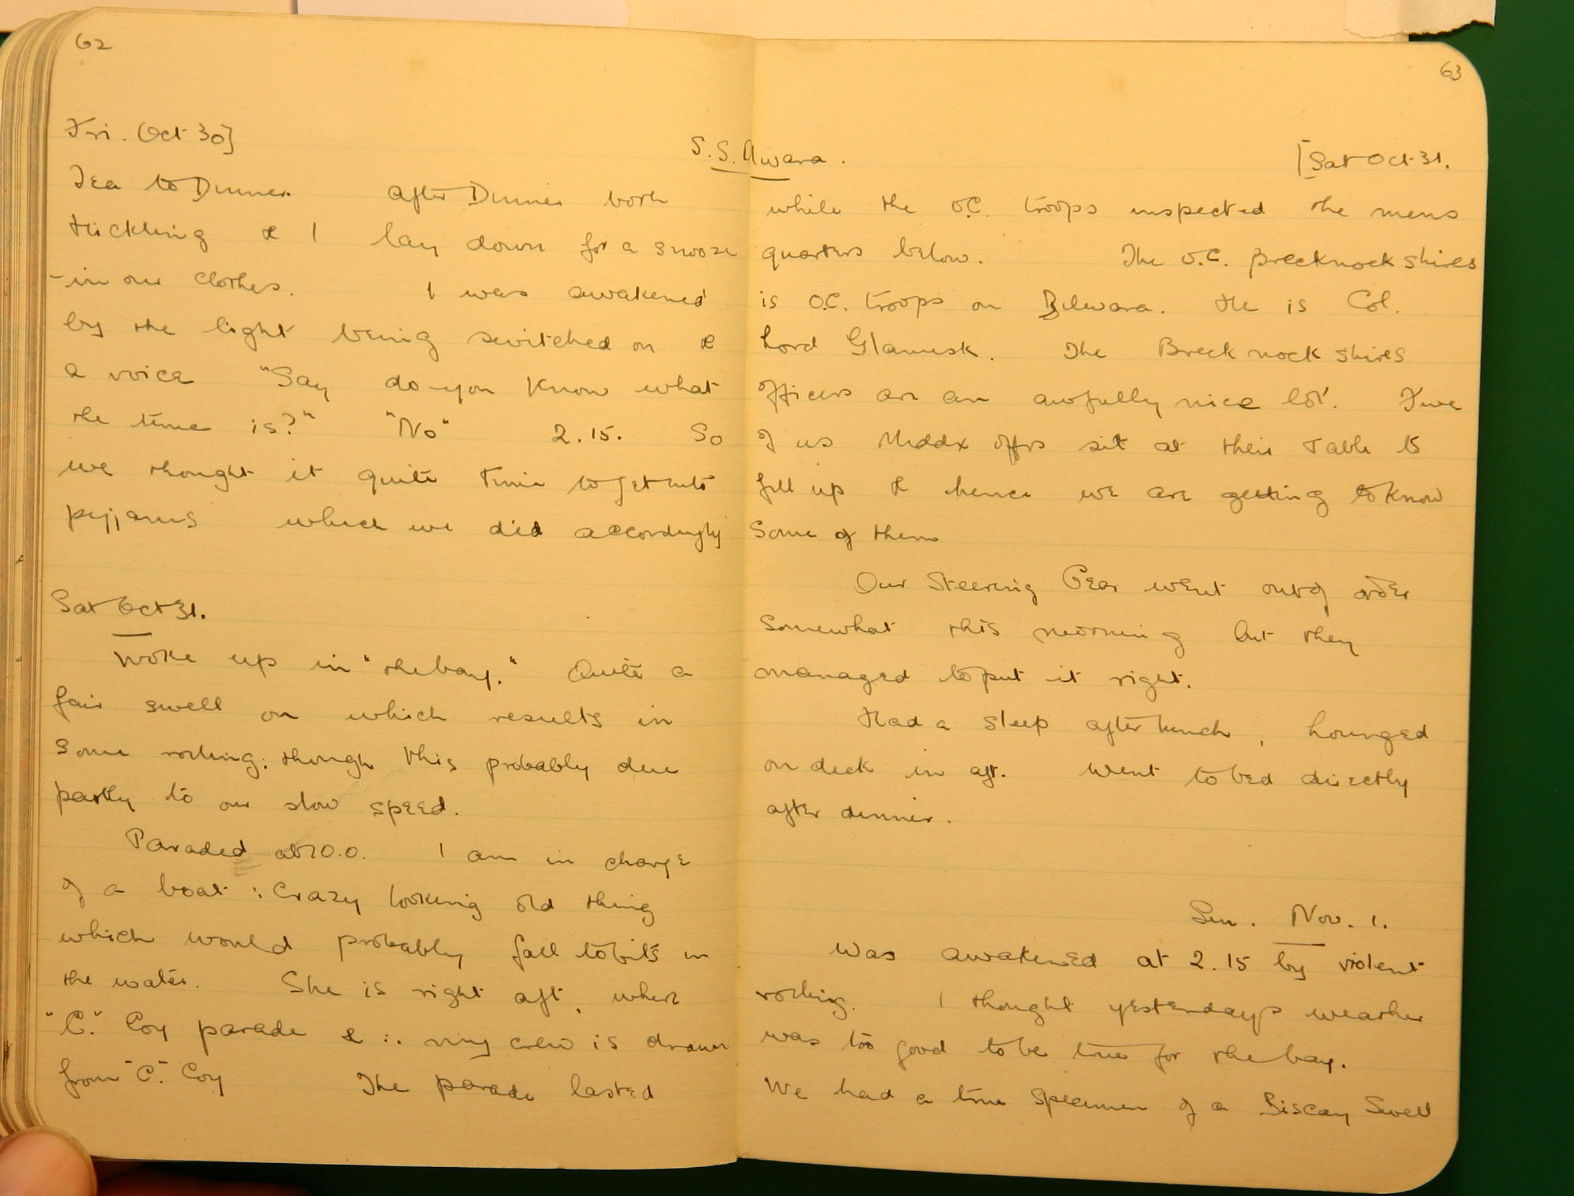 62
Fri. Oct 30]
Tea to Dinner. After Dinner both
Hickling & I lay down for a snooze
- in our clothes. I was awakened
by the light being switched on &
a voice "Say do you know what
the time is?" "No" 2.15. So
we thought it quite time to get into
pyjjams which we did accordingly
Sat Oct 31.
Woke up in "the bay." Quite a
fair swell on which results in
some rolling: though this probably due
partly to our slow speed.
Paraded at 10.0. I am in charge
of a boat: Crazy looking old thing
which would probably fall to bits in
the water. She is right aft, where
"C." Coy parade & ∴ my crew is drawn
from "C." Coy The parade lasted
S.S. Dilwara.
63
[Sat Oct 31.
while the O.C. troops inspected the mens
quarters below. The O.C. Brecknockshires
is O.C. troops on Dilwara. He is Col.
Lord Glanusk. The Brecknockshires
officers are an awfully nice lot. Five
of us Middx offrs sit at their table to
fill up & hence we are getting to know
some of them
Our Steering Gear went out of order
somewhat this morning but they
managed to put it right.
Had a sleep after lunch, lounged
on deck in aft. Went to bed directly
after dinner.
Sun. Nov. 1.
Was awakened at 2.15 by violent
rolling. I thought yesterdays weather
was too good to be true for the bay.
We had a true specimen of a Biscay Swell